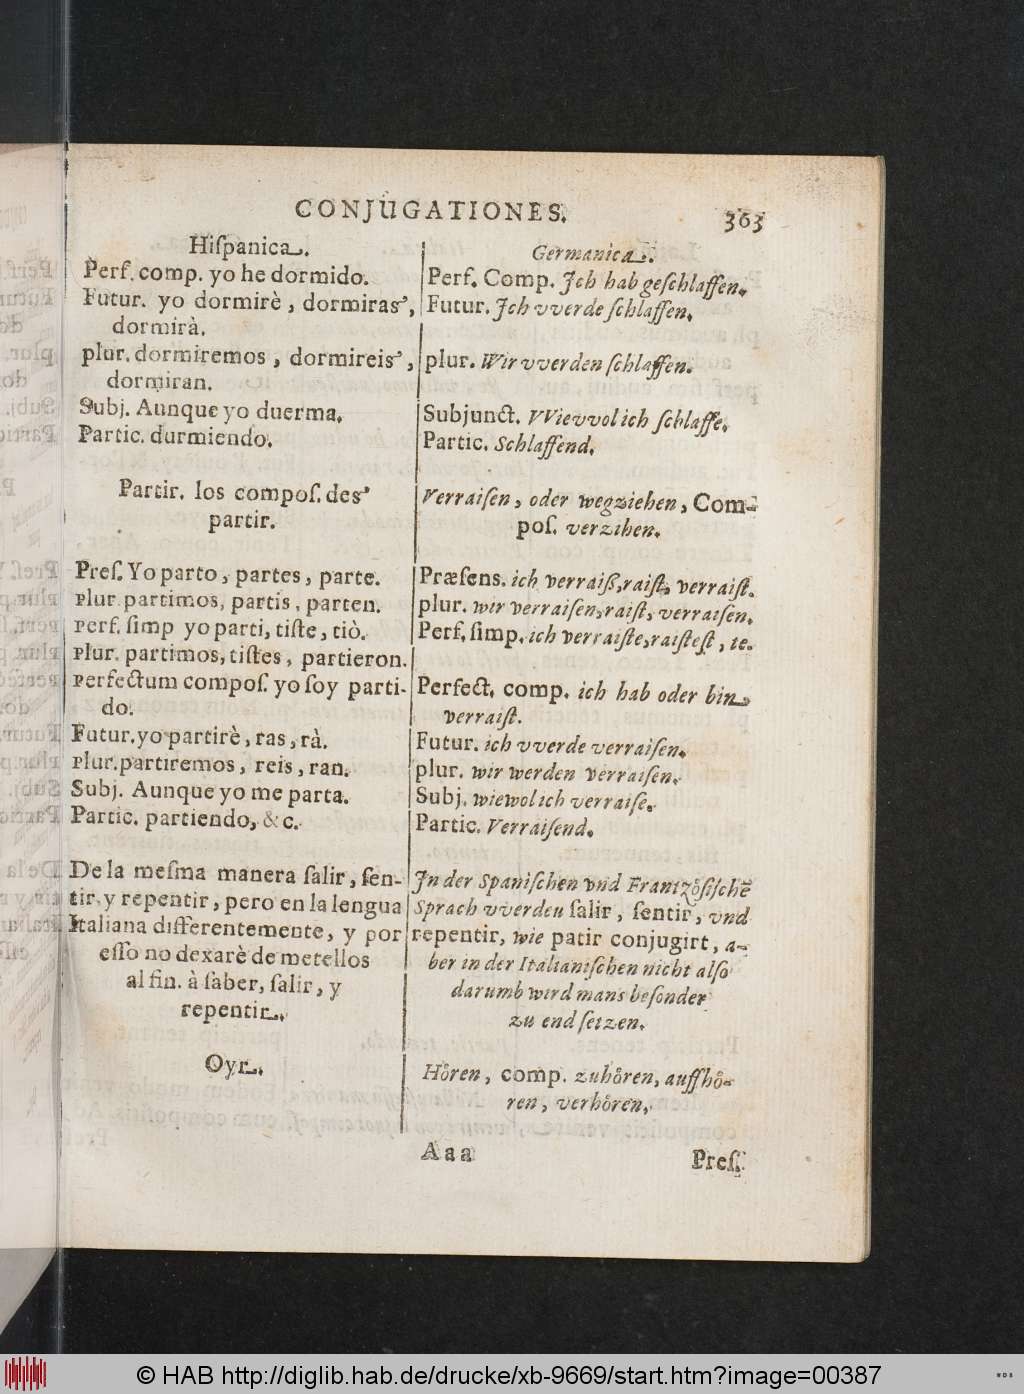 CONJUGATIONES.
363
Hiſpanica.
Perf. comp. yo he dormido.
Futur. yo dormirè, dormiras,
dormirà.
plur. dormiremos, dormireis,
dormiran.
Subj. Aunque yo duerma.
Partic. durmiendo.
Partir. los compoſ. des
partir.
Preſ. Yo parto, partes, parte.
Plur partimos, partis, parten.
Perf. ſimp yo parti, tiſte, tiò.
Plur. partimos, tiſtes, partieron.
Perfectum compoſ. yo ſoy parti-
do.
Futur. yo partirè, ras, rà.
Plur. partiremos, reis, ran.
Subj. Aunque yo me parta.
Partic. partiendo, &c.
De la meſma manera ſalir, ſen-
tir, y repentir, pero en la lengua
Italiana differentemente, y por
eſſo no dexarè de metellos
al fin. à ſaber, ſalir, y
repentir.
Oyr.
Germanica.
Perf. Comp. Ich hab geſchlaffen.
Futur. Ich vverde ſchlaffen.
plur. Wir vverden ſchlaffen.
Subjunct. VVievvol ich ſchlaffe.
Partic. Schlaffend.
Verraiſen, oder wegziehen, Com-
poſ. verzihen.
Præſens. ich verraiß, raiſt, verraiſt.
plur. wir verraiſen, raiſt, verraiſen.
Perf. ſimp. ich verraiſte, raiſteſt, te.
Perfect. comp. ich hab oder bin
verraiſt.
Futur. ich vverde verraiſen.
plur. wir werden verraiſen.
Subj. wiewol ich verraiſe.
Partic. Verraiſend.
In der Spaniſchen vnd Frantzöſiſche
Sprach vverden ſalir, ſentir, vnd
repentir, wie patir conjugirt, a-
ber in der Italianiſchen nicht alſo
darumb wird mans beſonder
zu end ſetzen.
Hören, comp. zuhören, auffhö-
ren, verhören.
Aaa
Preſ.
© HAB http://diglib.hab.de/drucke/xb-9669/start.htm?image=00387